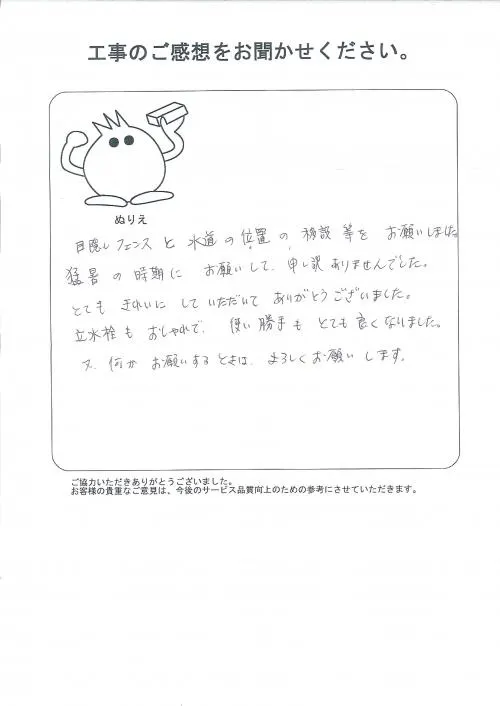 工事のご感想をお聞かせください。
ぬりえ
目隠しフェンスと水道の位置の移設等をお願いしました。
猛暑の時期にお願いして、申し訳ありませんでした。
とてもきれいにしていただいてありがとうございました。
立水栓もおしゃれで、使い勝手もとても良くなりました。
又、何かお願いするときは、よろしくお願いします。
ご協力いただきありがとうございました。
お客様の貴重なご意見は、今後のサービス品質向上のための参考にさせていただきます。